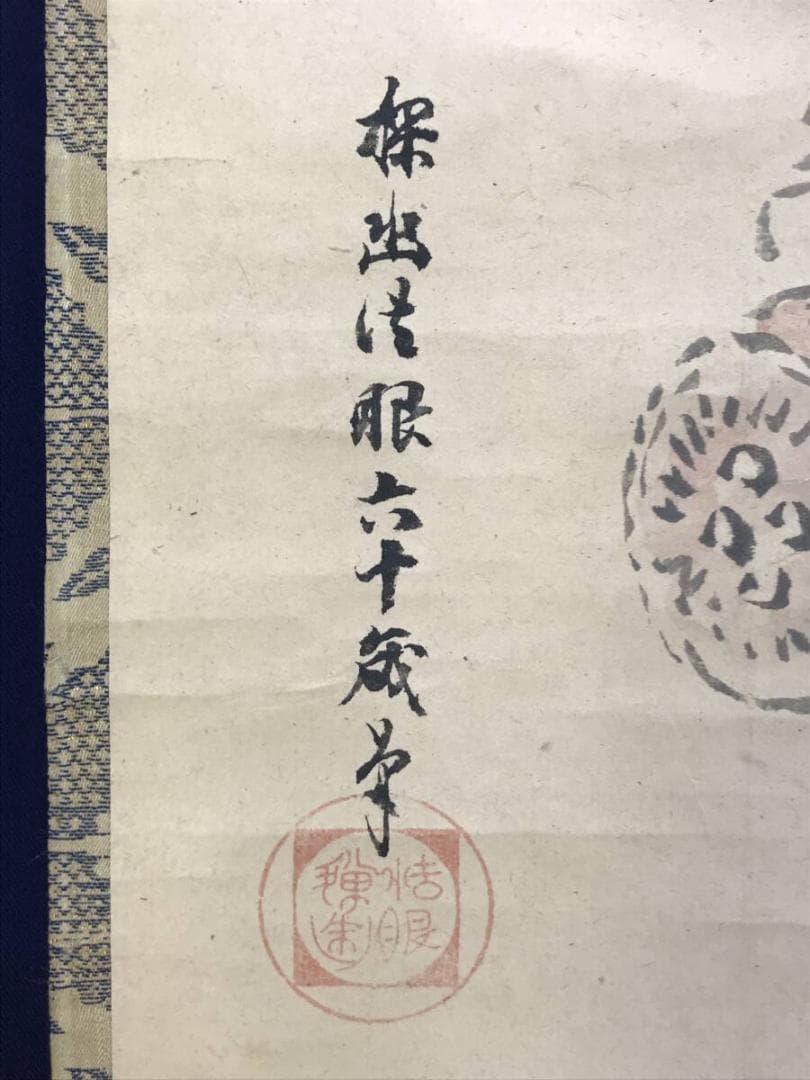 探幽法眼六十歳筆
法眼
探幽